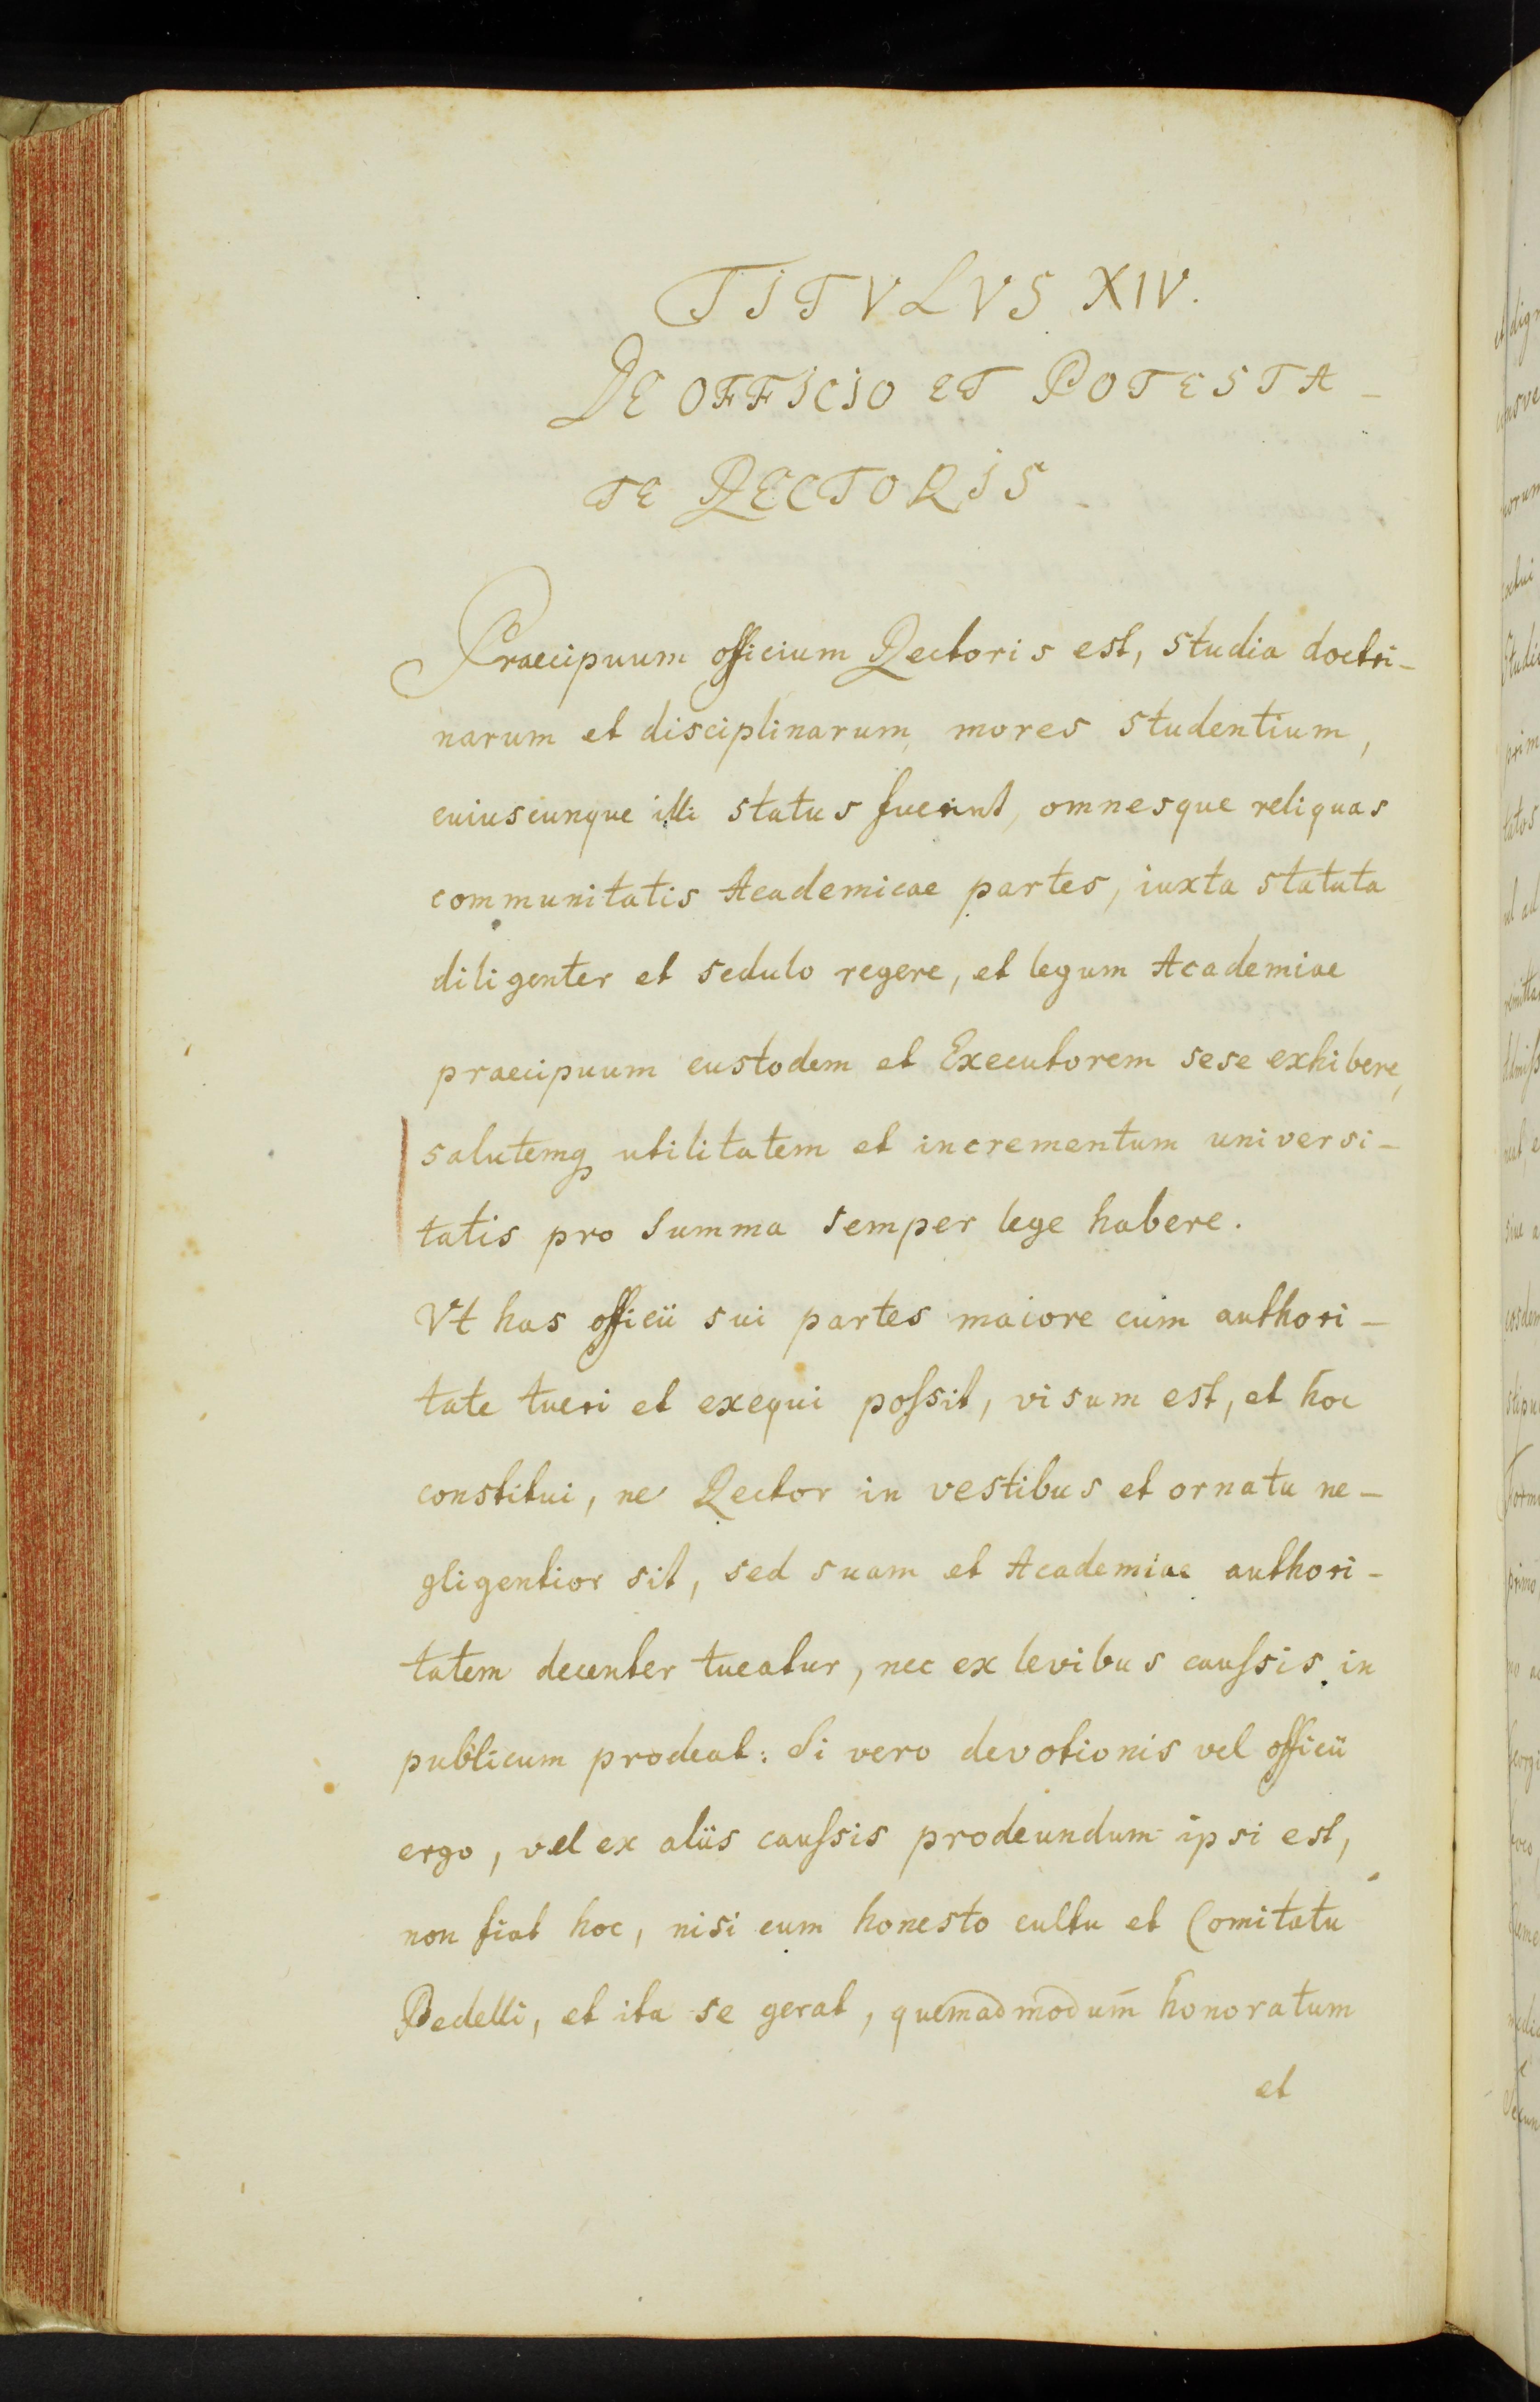 TITVLVS XIV.
DE OFFICIO ET POTESTA-
TE RECTORIS.
Praecipuum officium Rectoris est, studia doctri-
narum et disciplinarum, mores studentium,
cuiuscunque illi status fuerint, omnesque reliquas
communitatis Academicae partes, iuxta statuta
diligenter et sedulo regere, et legum Academiae
praecipuum custodem et Executorem sese exhibere,
salutemq utilitatem et incrementum universi-
tatis pro summa semper lege habere.
Vt has officii sui partes maiore cum authori-
tate tueri et exequi poſsit, visum est, et hoc
constitui, ne Rector in vestibus et ornatu ne-
gligentior sit, sed suam et Academiae authori-
tatem decenter tueatur, nec ex levibus cauſsis in
publicum prodeat: Si vero devotionis vel officii
ergo, vel ex aliis cauſsis prodeundum ipsi est,
non fiat hoc, nisi cum honesto cultu et Comitatu
Bedelli, et ita se gerat, quemadmodum honoratum
et